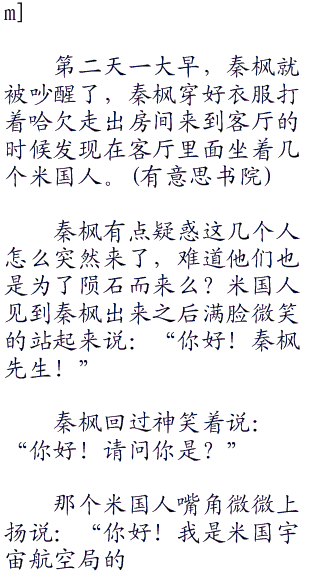 m]
第二天一大早，秦枫就
被吵醒了，秦枫穿好衣服打
着哈欠走出房间来到客厅的
时候发现在客厅里面坐着几
个米国人。(有意思书院)
秦枫有点疑惑这几个人
怎么突然来了，难道他们也
是为了陨石而来么？米国人
见到秦枫出来之后满脸微笑
的站起来说：“你好！秦枫
先生！”
秦枫回过神笑着说：
“你好！请问你是？”
那个米国人嘴角微微上
扬说：“你好！我是米国宇
宙航空局的